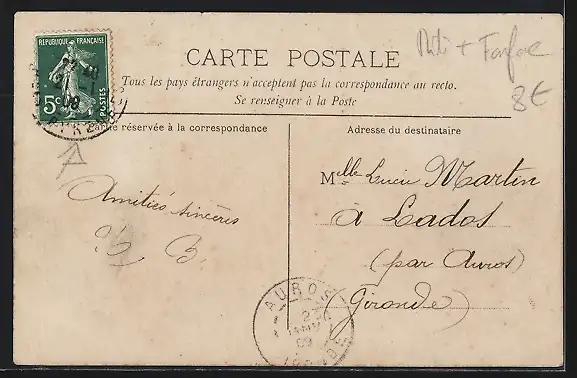 REPUBLIQUE FRANÇAISE
5c POSTES
CARTE POSTALE
+
8€
Tous les pays étrangers n'acceptent pas la correspondance au recto.
Se renseigner à la Poste
Partie réservée à la correspondance
Adresse du destinataire
Amitiés sincères
B.
Melle Lucie Martin
à Lados
(par Auros)
Gironde)
AUROS
23
JANV
09
GIRONDE